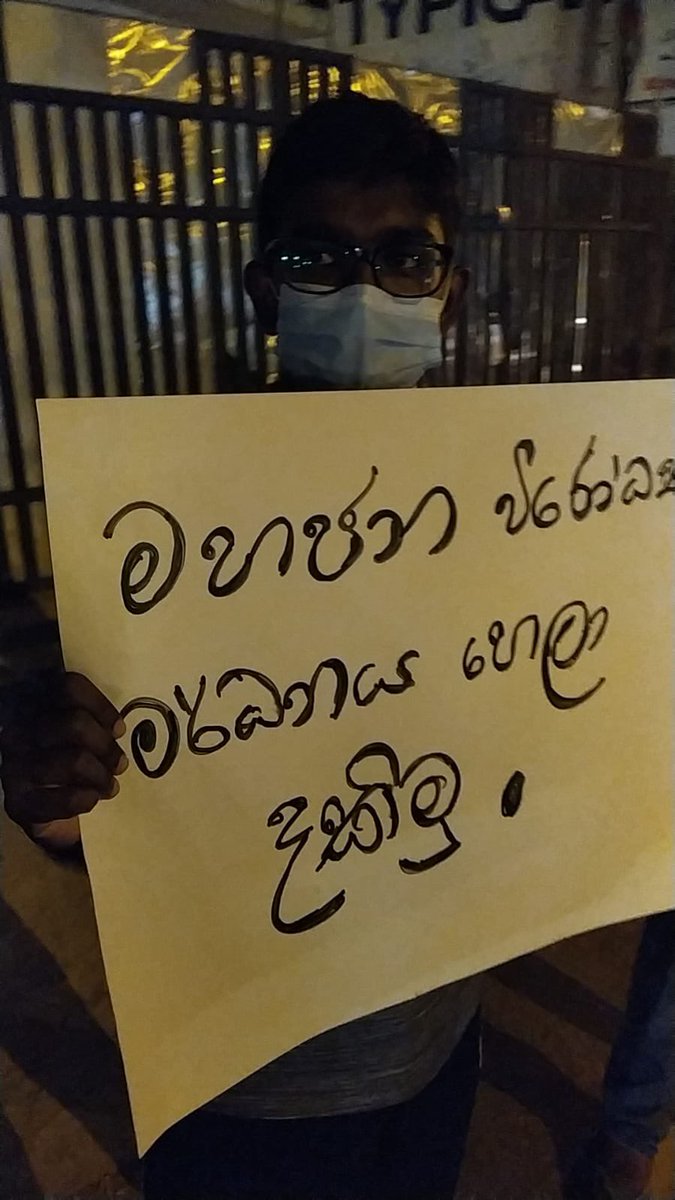 TYPICA
මහජන විරෝධය
මර්ධනය හෙලා
දකිමු .